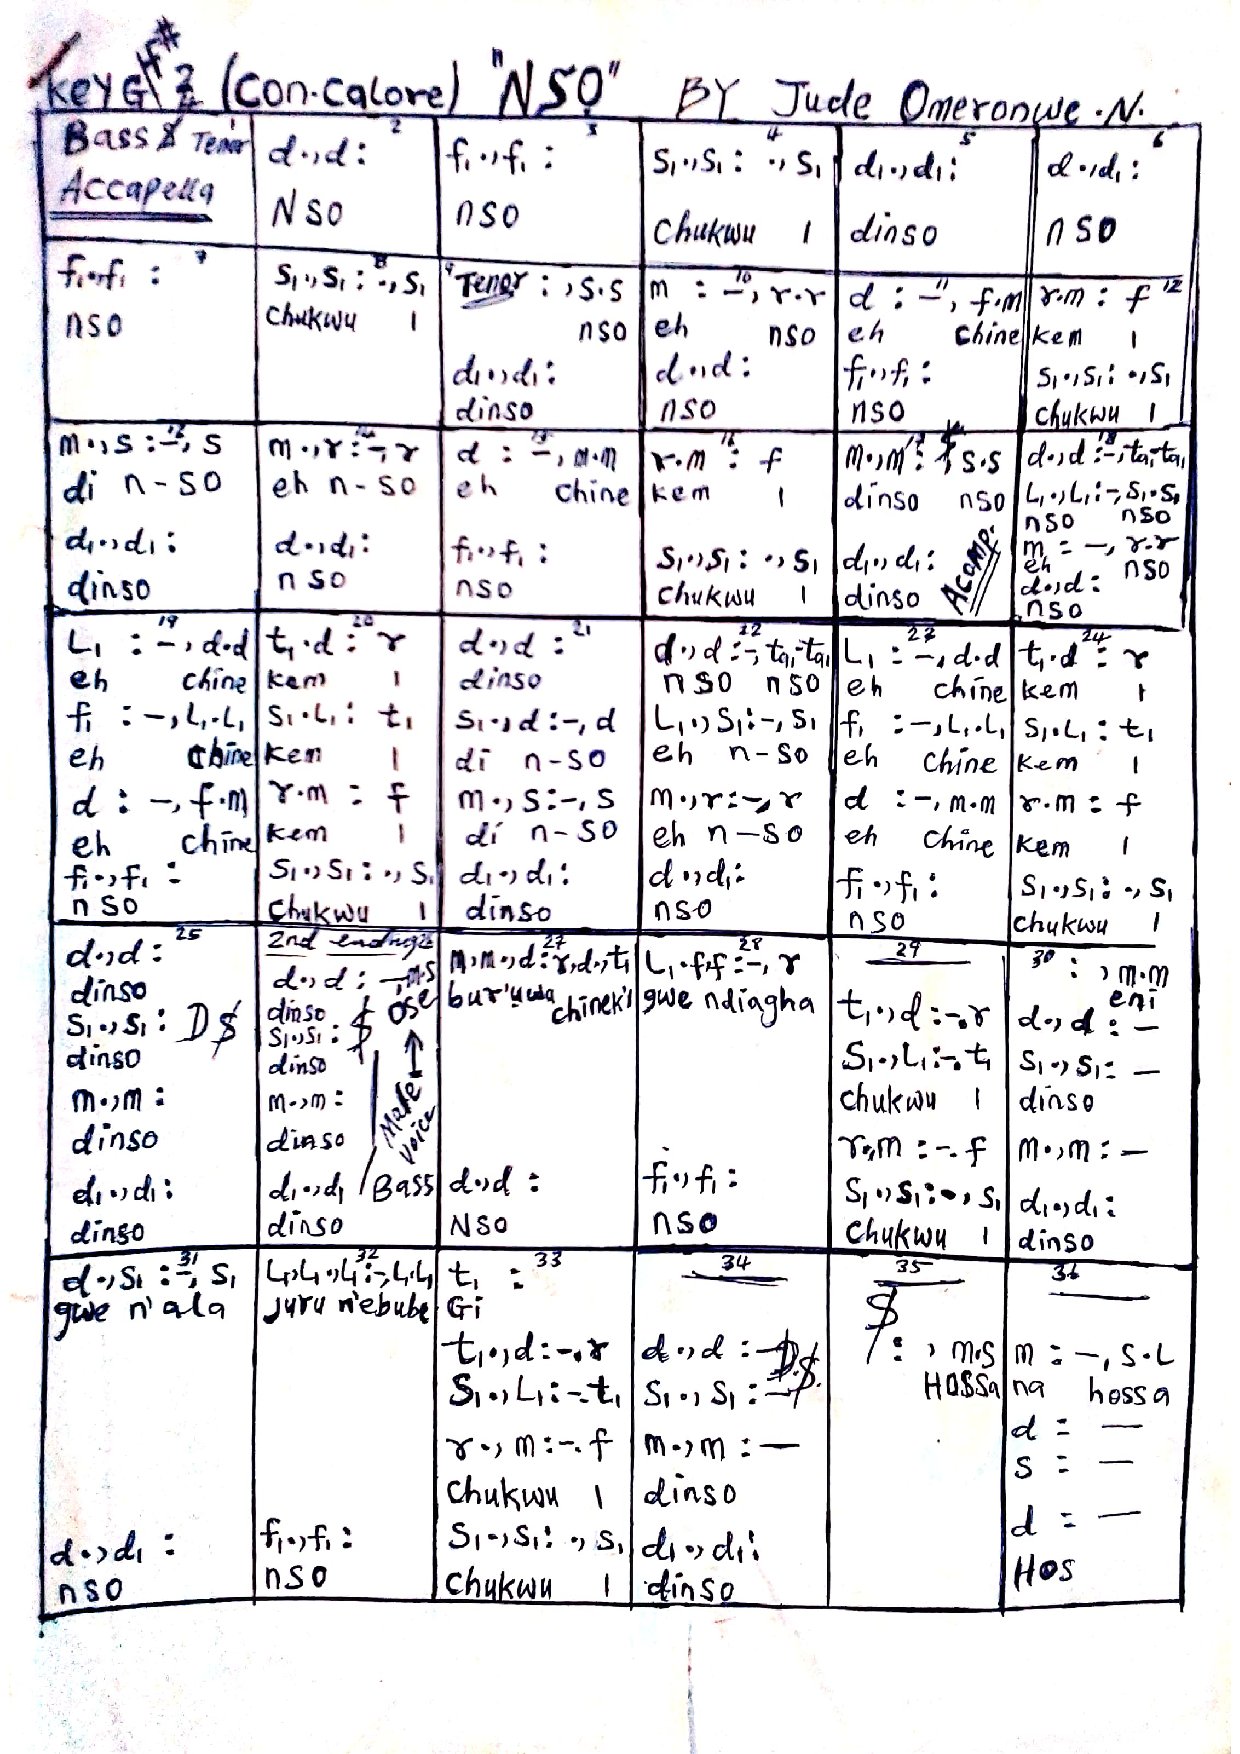 KEY G F# 2/2 (Con.calore) "NSỌ" BY Jude Omeronwe .N.
Bass & Tenor
Accapella
2
d.,d:
NSO
3
f₁.,f₁ :
nso
4
S₁.,S₁: .,S₁
chukwu 1
5
d₁.,d₁:
dinso
6
d.,d₁:
nso
7
f₁.,f₁ :
nso
8
S₁.,S₁: .,S₁
chukwu 1
9
Tenor : ,S.S
nso
d₁.,d₁:
dinso
10
m : -, r.r
eh nso
d.,d:
nso
11
d : -, f.m
eh chine
f₁.,f₁:
nso
12
r.m : f
kem 1
S₁.,S₁: .,S₁
chukwu 1
13
m.,s :-, s
di n-so
d₁.,d₁:
dinso
14
m.,r:-, r
eh n-so
d.,d₁:
nso
15
d : -, m.m
eh chine
f₁.,f₁ :
nso
16
r.m : f
kem 1
S₁.,S₁: .,S₁
chukwu 1
17
m.,m : S.S
dinso nso
d₁., d₁:
dinso
Acomp.
18
d.,d:-,ta₁.ta₁
L₁.,L₁:-,S₁.S₁
nso nso
m = -, r.r
eh nso
d.,d:
nso
19
L₁ : -, d.d
eh chine
f₁ : -,L₁.L₁
eh chine
d : -, f.m
eh chine
f₁.,f₁ :
nso
20
t₁.d : r
kem 1
S₁.L₁: t₁
kem 1
r.m : f
kem 1
S₁.,S₁: ., S₁
Chukwu 1
21
d.,d :
dinso
S₁.,d :-, d
di n-so
m., s:-, s
di n-so
d₁.,d₁:
dinso
22
d.,d:-,ta₁.ta₁
nso nso
L₁.,S₁:-, S₁
eh n-so
m.,r:-, r
eh n-so
d.,d₁:
nso
23
L₁ : -, d.d
eh chine
f₁ :-,L₁.L₁
eh chine
d :-, m.m
eh chine
f₁.,f₁:
nso
24
t₁.d : r
kem 1
S₁.L₁ : t₁
kem 1
r.m = f
kem 1
S₁.,S₁: ., S₁
chukwu 1
25
d.,d:
dinso
S₁.,S₁: D$
dinso
m.,m:
dinso
d₁.,d₁:
dinso
2nd ending 26
d.,d : -,m.s
dinso Ose
S₁.,S₁: $
dinso
m.,m:
dinso
d₁.,d₁
dinso
Male Voice
Bass
27
m.,m.,d:r,d.,t₁
bur'uwa chinek'i
d.,d :
NSO
28
L₁.f,f:-, r
gwe ndiagha
f₁.,f₁ :
nso
29
t₁.,d :-.r
S₁.,L₁:-. t₁
chukwu 1
r.,m :-. f
S₁.,S₁: ., S₁
Chukwu 1
30
: , m.m
eni
d., d : —
S₁., S₁: —
dinso
m.,m: —
d₁.,d₁:
dinso
31
d.,S₁ :-, S₁
gwe n'ala
d.,d₁ :
nso
32
L₁,L₁.,L₁:-,L₁.L₁
juru n'ebube
f₁.,f₁:
nso
33
t₁ :
Gi
t₁.,d:-.r
S₁.,L₁:-.t₁
r., m:-. f
Chukwu 1
S₁.,S₁: ., S₁
Chukwu 1
34
d.,d : — D.$.
S₁., S₁ : —
m.,m : —
dinso
d₁.,d₁:
dinso
35
$
: , m.s
HOSSa
36
m : -, s.L
na hossa
d = —
s = —
d = —
Hos